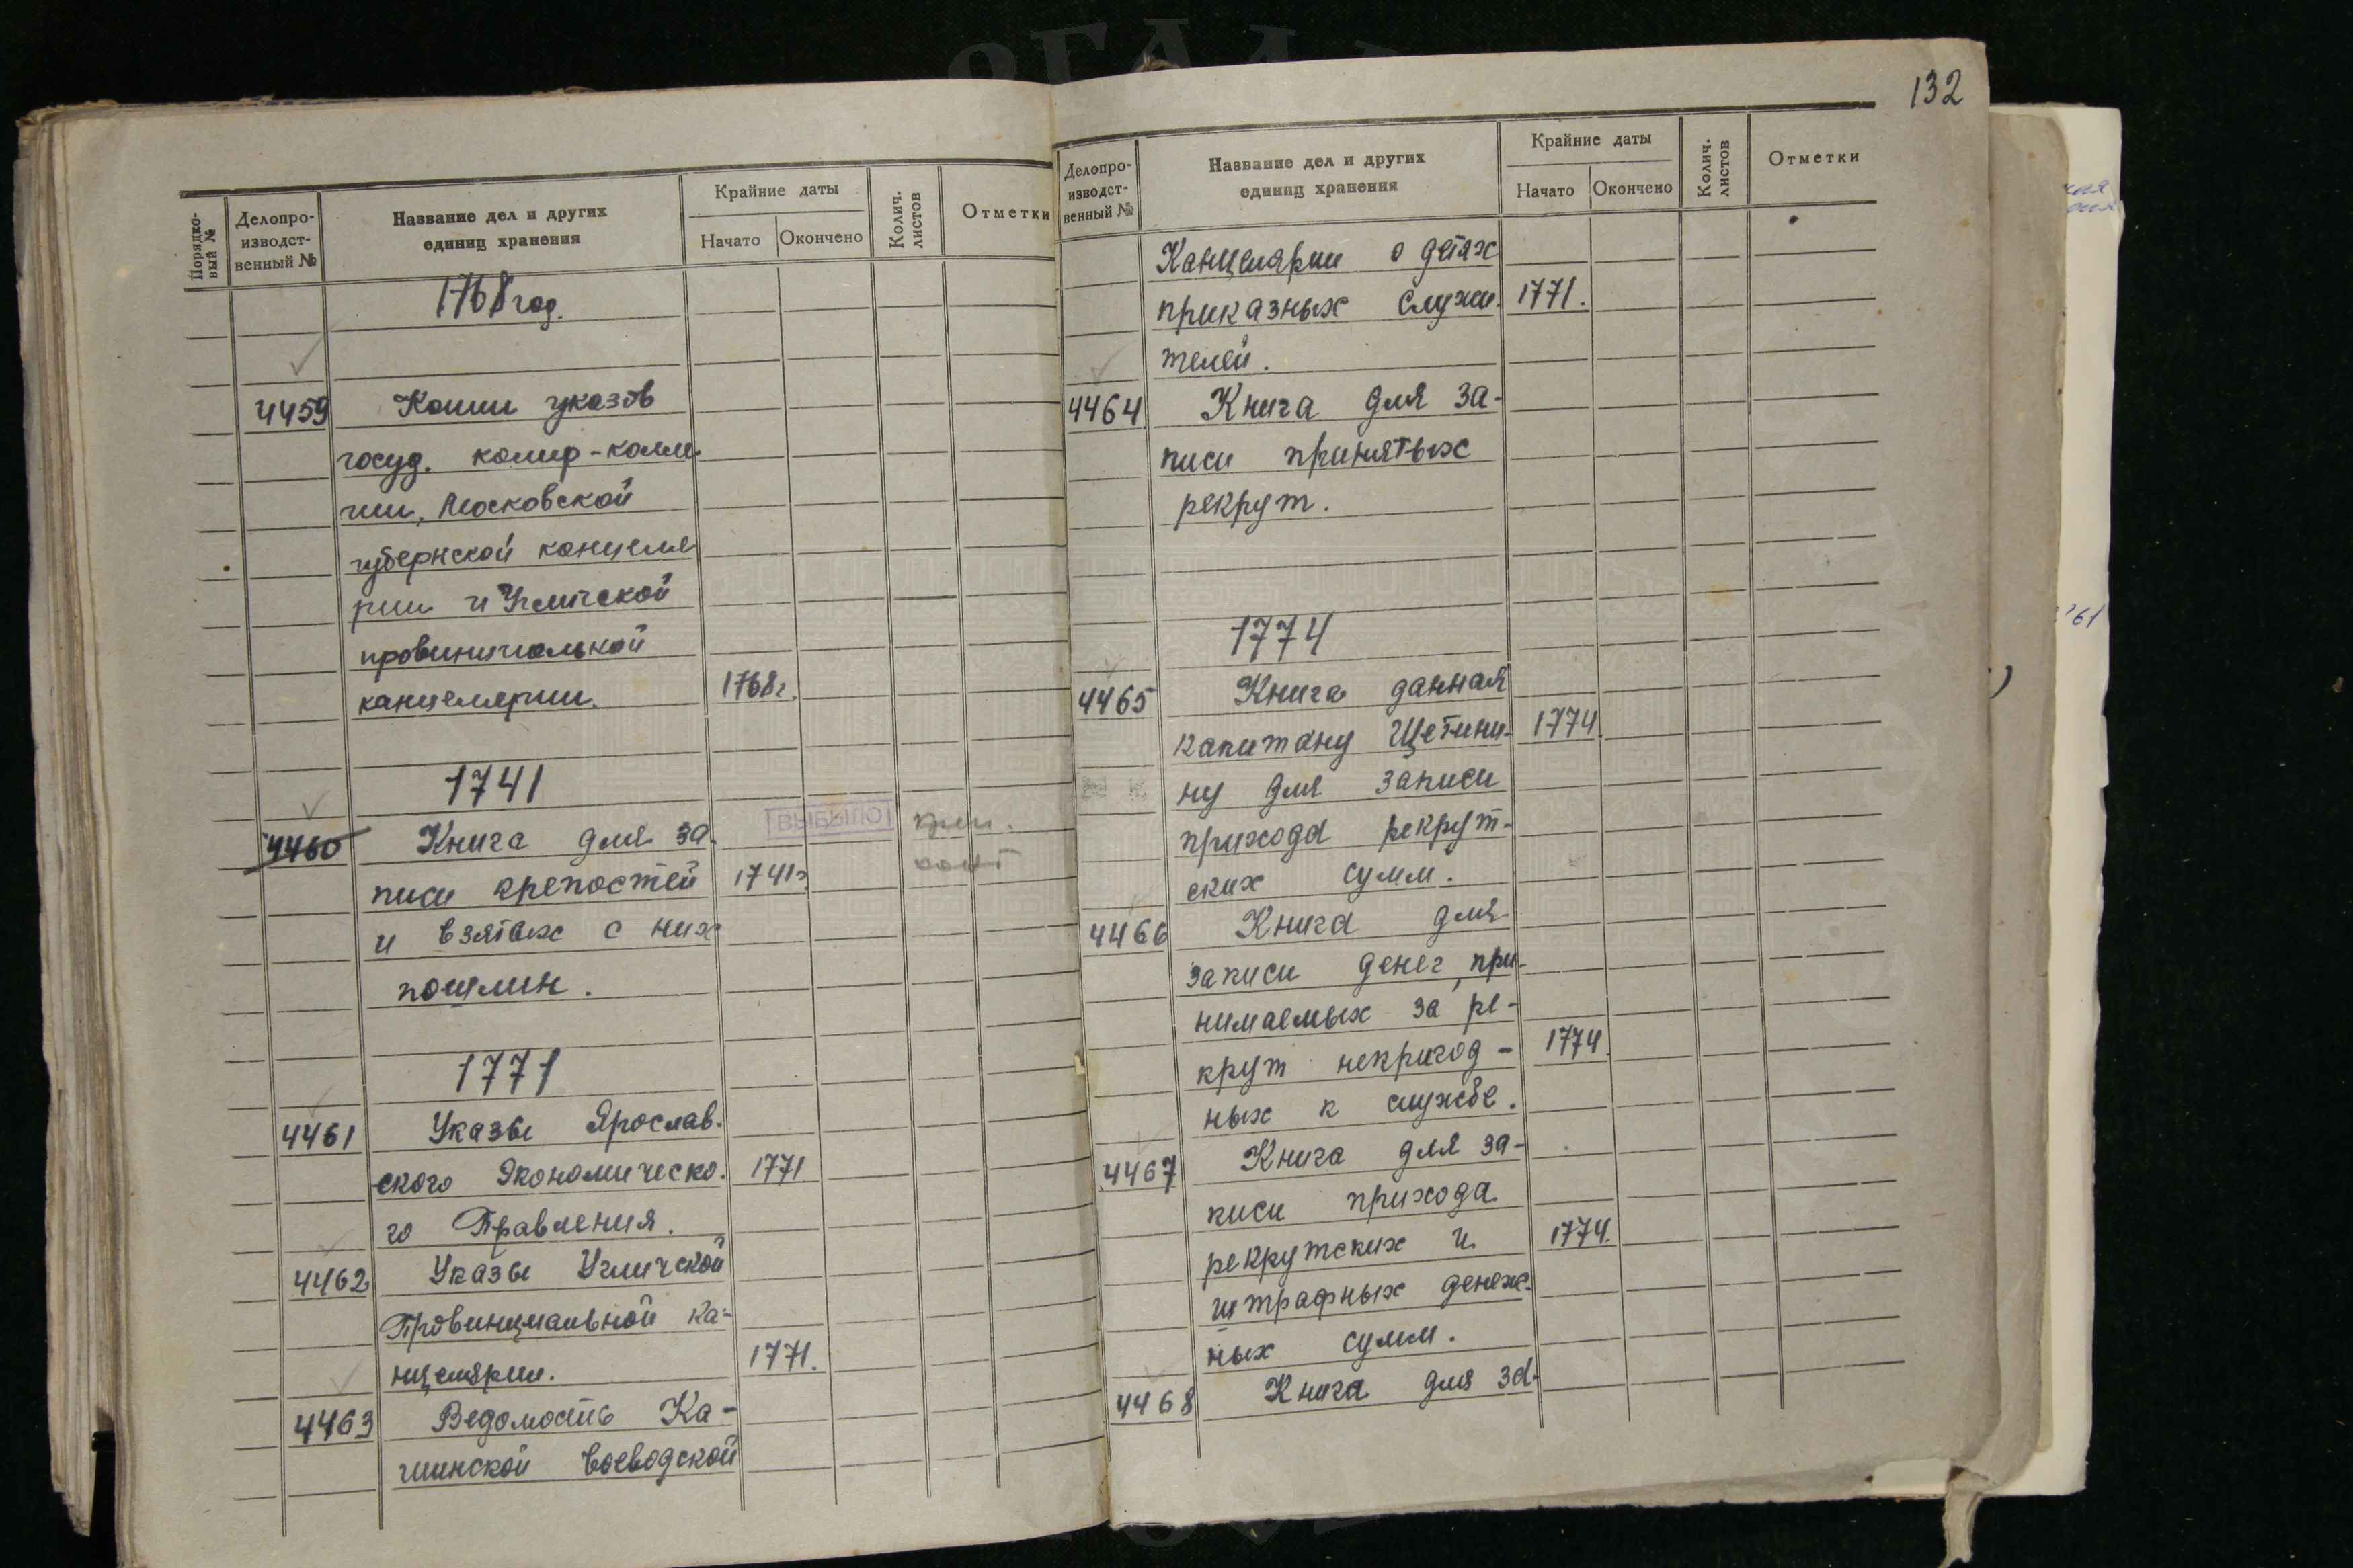 Порядко-
вый №
Делопро-
изводст-
венный №
Название дел и других
единиц хранения
Крайние даты
Начато
Окончено
Колич.
листов
Отметки
1768 год.
4459
Копии указов
госуд. камер-колле-
гии, Московской
губернской канцеля
рии и Угличской
провинциальной
канцелярии.
1768г.
1741
4460
Книга для за-
ВЫБЫЛО
писи крепостей
1741г.
и взятых с них
пошлин.
1771
4461
Указы Ярослав-
ского Экономическо-
1771
го Правления.
4462
Указы Угличской
Провинциальной ка-
нцелярии.
1771.
4463
Ведомость Ка-
шинской воеводской
132
Делопро-
изводст-
венный №
Название дел и других
единиц хранения
Крайние даты
Начато
Окончено
Колич.
листов
Отметки
Канцелярии о детях
приказных служи-
1771.
телей.
4464
Книга для за-
писи принятых
рекрут.
1774
4465
Книга данная
капитану Щетини-
1774.
ну для записи
прихода рекрут-
ских сумм.
4466
Книга для
записи денег, при-
нимаемых за ре-
крут непригод-
1774.
ных к службе.
4467
Книга для за-
писи прихода
рекрутских и
1774.
штрафных денеж-
ных сумм.
4468
Книга для за-